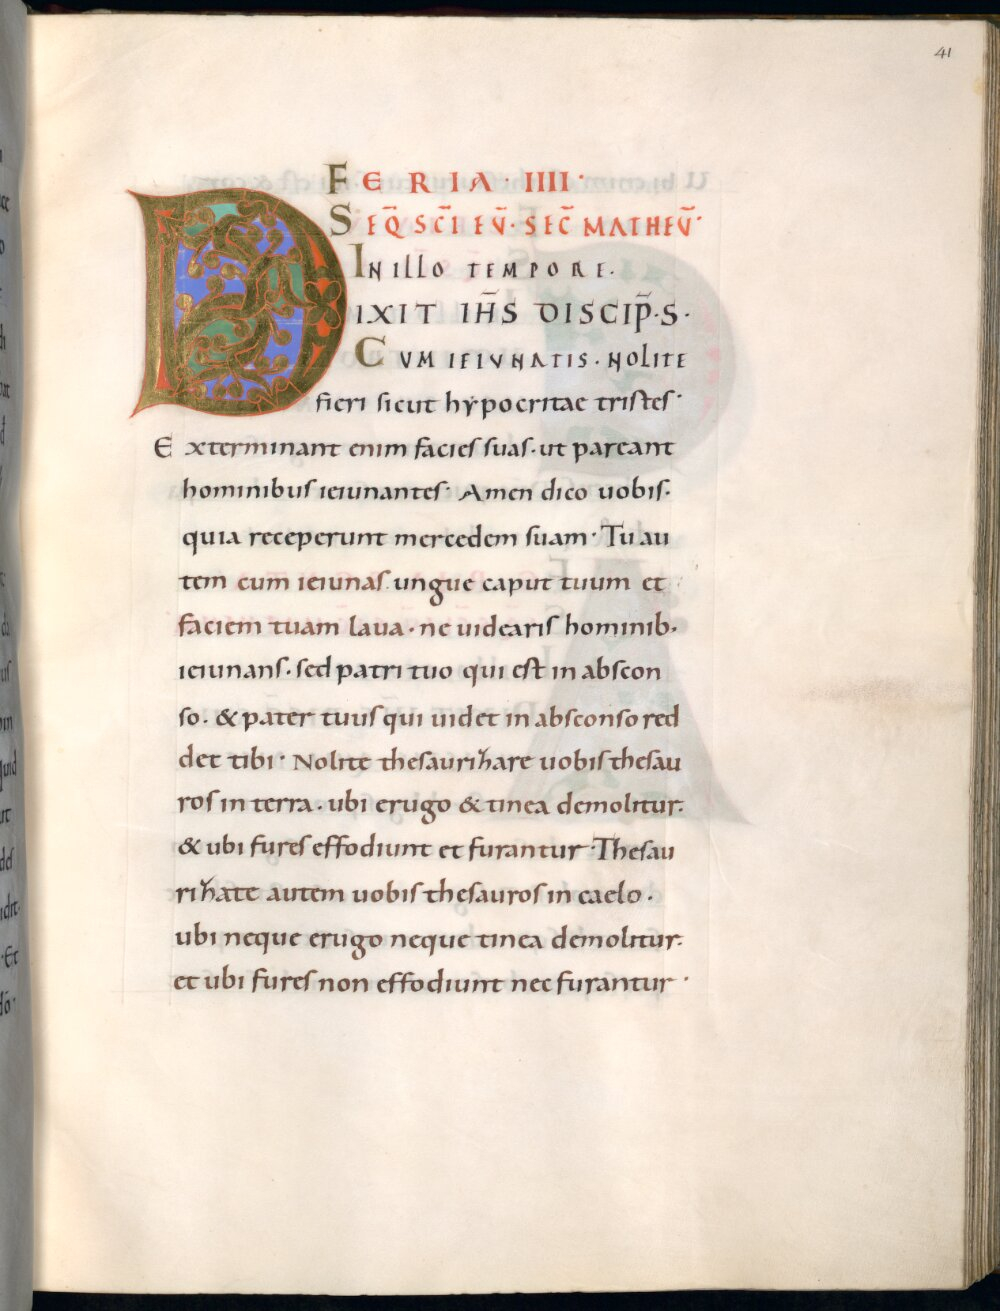 41
FERIA · IIII ·
SEQ̄ SC̄I EV̄ · SEC̄ MATHEV̄ ·
IN ILLO TEMPORE ·
DIXIT IH̄S DISCIP̄ · S ·
CUM IEIUNATIS · NOLITE
fieri sicut hẏpocritae tristes ·
Exterminant enim facies suas · ut pareant
hominibus ieiunantes · Amen dico uobis ·
quia receperunt mercedem suam · Tu au
tem cum ieiunas ungue caput tuum et
faciem tuam laua · ne uidearis hominib ·
ieiunans · sed patri tuo qui est in abscon
so · & pater tuus qui uidet in absconso red
det tibi · Nolite thesaurihare uobis thesau
ros in terra · ubi erugo & tinea demolitur ·
& ubi fures effodiunt et furantur · Thesau
rihate autem uobis thesauros in caelo ·
ubi neque erugo neque tinea demolitur ·
et ubi fures non effodiunt nec furantur ·